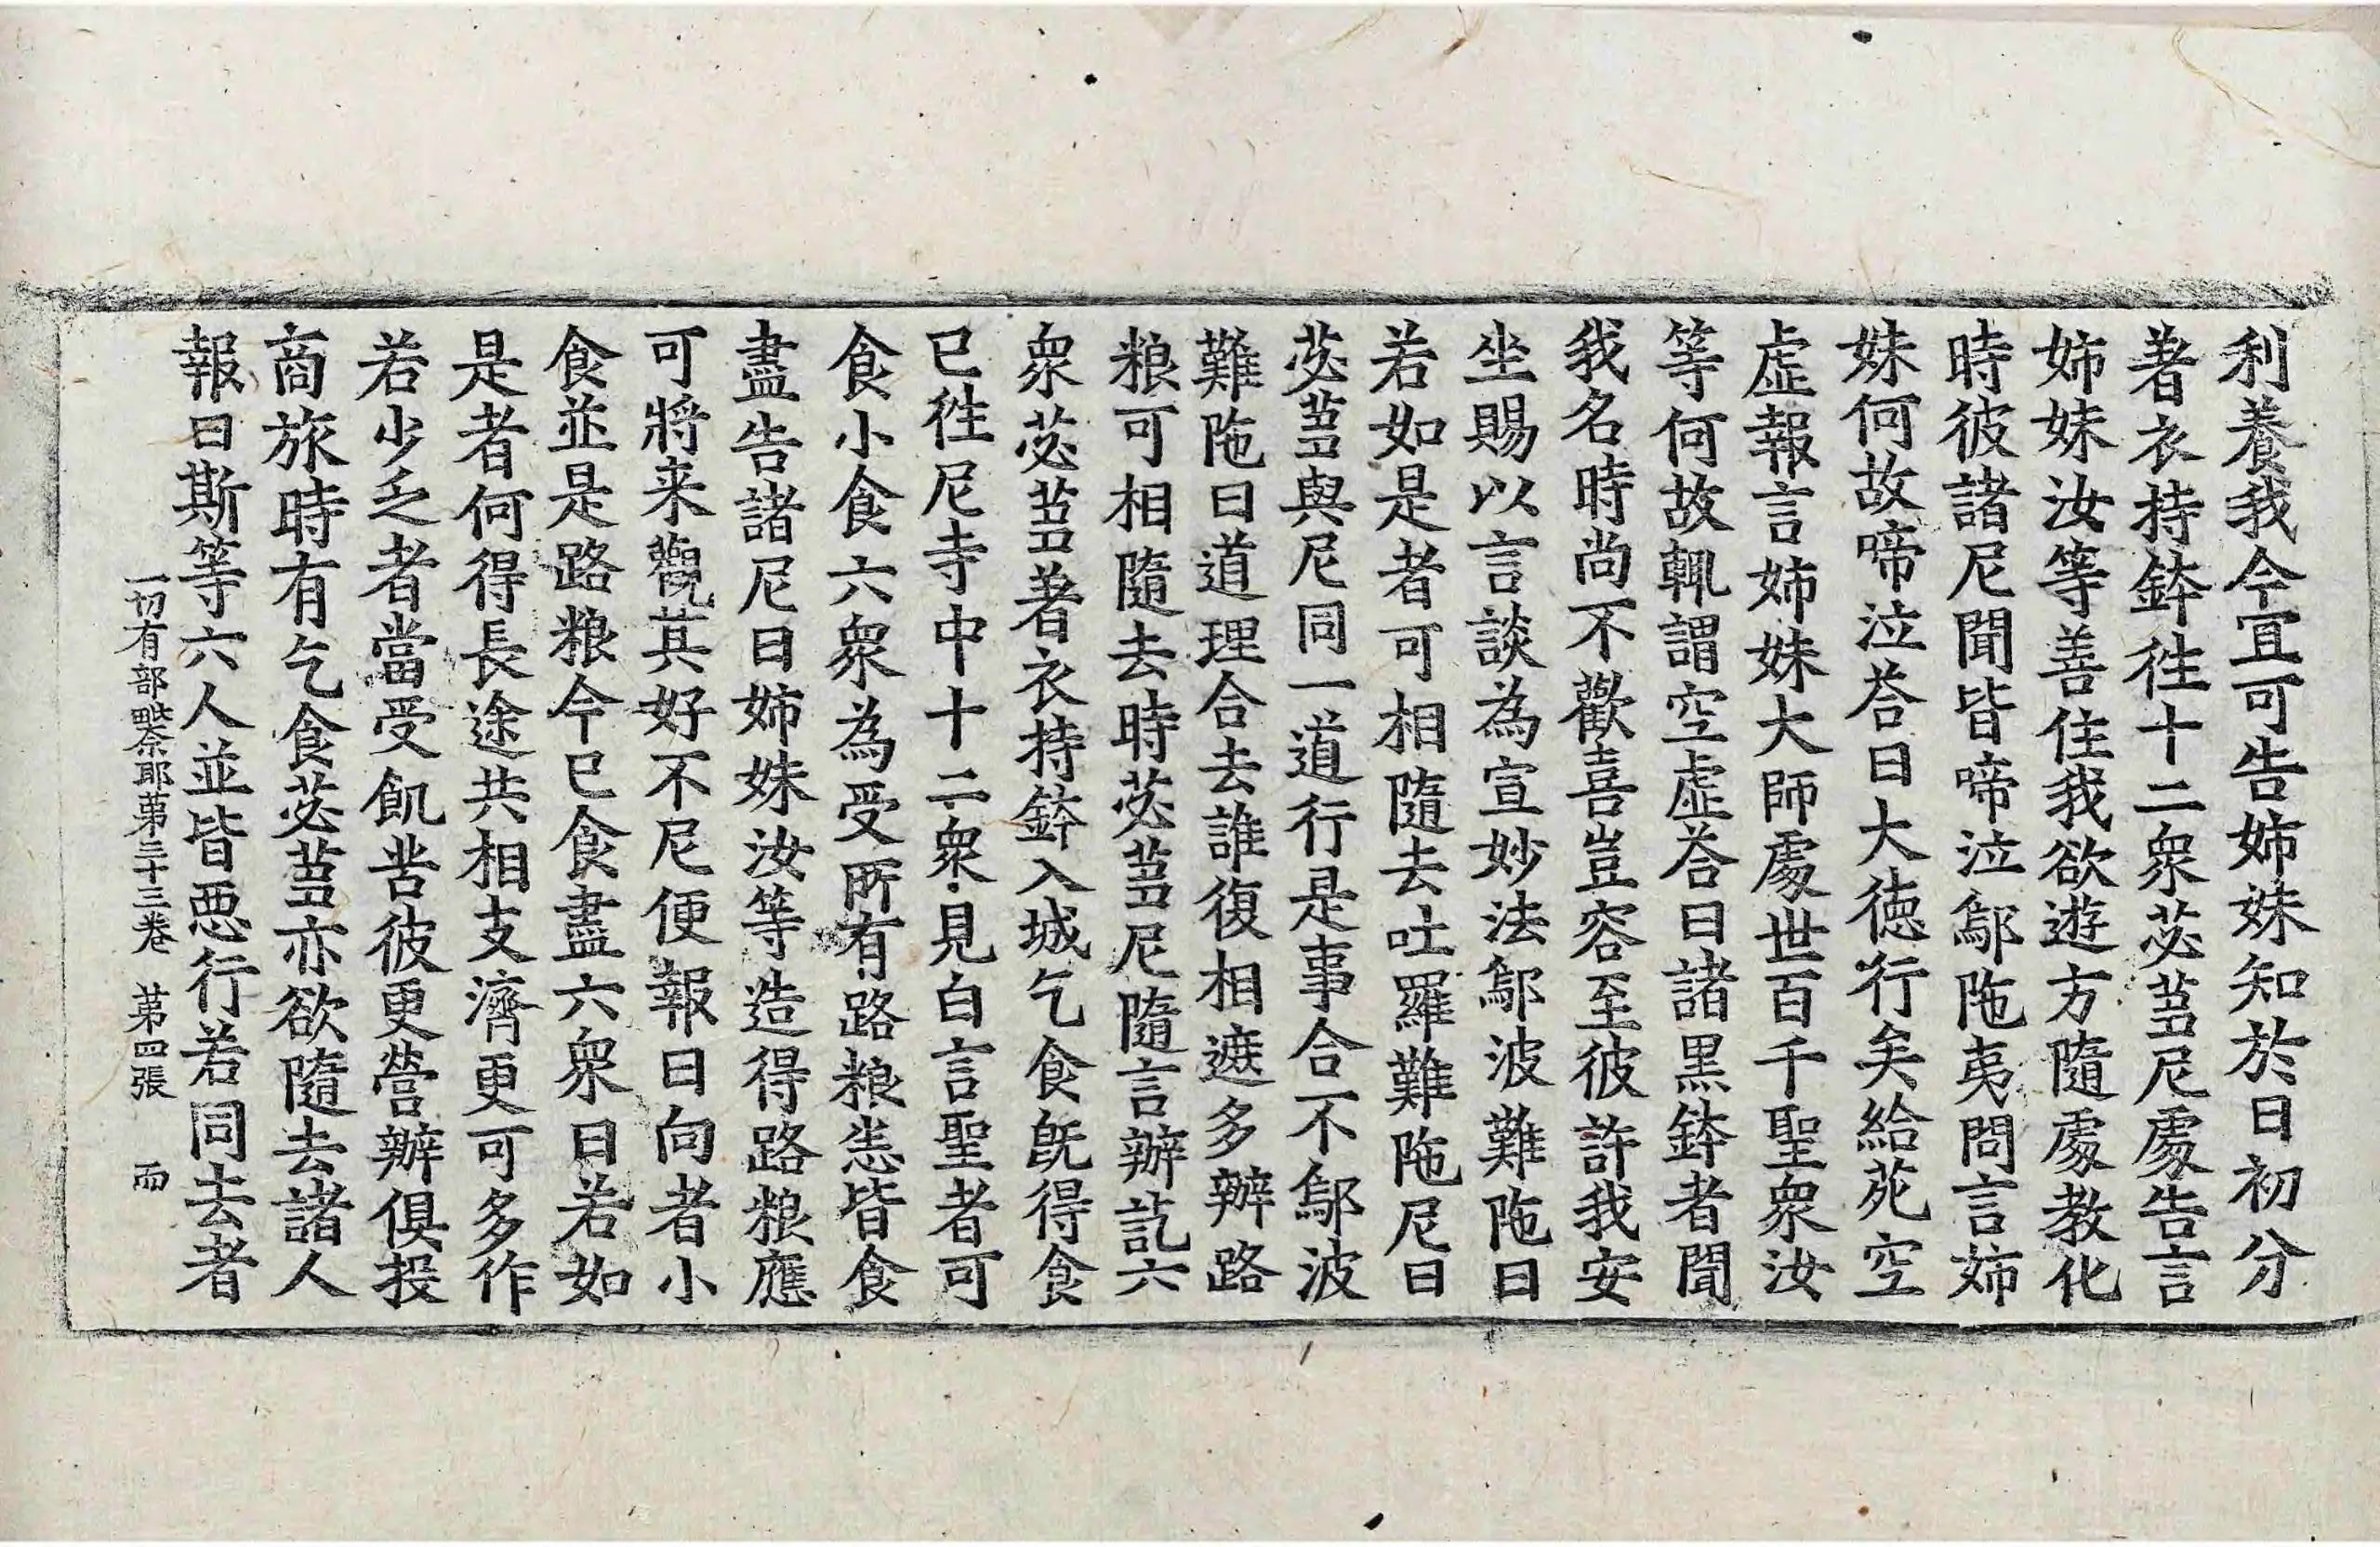 利養我今宜可告姉妹知於日初分
著衣持鉢徃十二衆苾蒭尼處告言
姉妹汝等善住我欲遊方隨處教化
時彼諸尼聞皆啼泣鄔陁夷問言姉
妹何故啼泣荅曰大徳行矣給苑空
虛報言姉妹大師處世百千聖衆汝
等何故輒謂空虛荅曰諸黑鉢者聞
我名時尚不歡喜豈容至彼許我安
坐賜以言談為宣妙法鄔波難陁曰
若如是者可相隨去吐羅難陁尼曰
苾蒭與尼同一道行是事合不鄔波
難陁曰道理合去誰復相遮多辦路
粮可相隨去時苾蒭尼隨言辦訖六
衆苾蒭著衣持鉢入城乞食旣得食
已徃尼寺中十二衆見白言聖者可
食小食六衆為受所有路粮悉皆食
盡告諸尼曰姉妹汝等造得路粮應
可將来觀其好不尼便報曰向者小
食並是路粮今已食盡六衆曰若如
是者何得長途共相支濟更可多作
若少乏者當受飢苦彼更營辦俱投
商旅時有乞食苾蒭亦欲隨去諸人
報曰斯等六人並皆惡行若同去者
一切有部毗奈耶第三十三卷 第四張 而